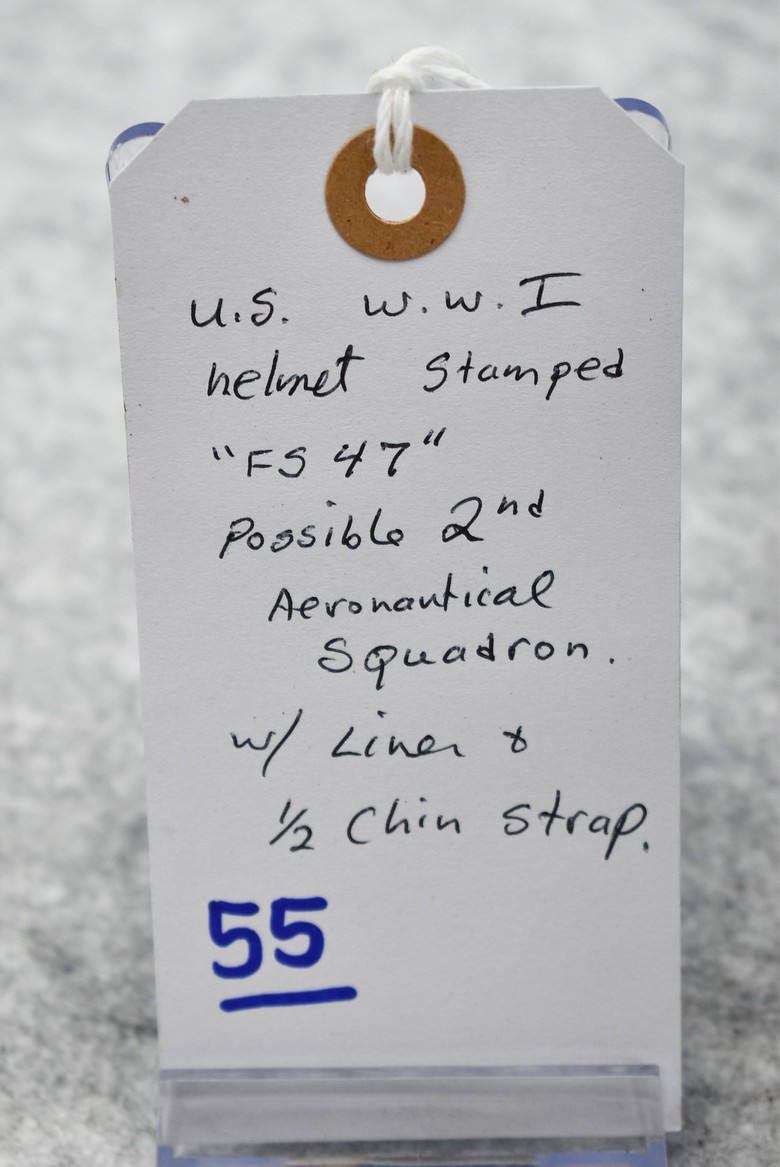 U.S. W.W. I
helmet Stamped
"FS 47"
Possible 2nd
Aeronautical
Squadron.
w/ Liner &
1/2 Chin Strap.
55